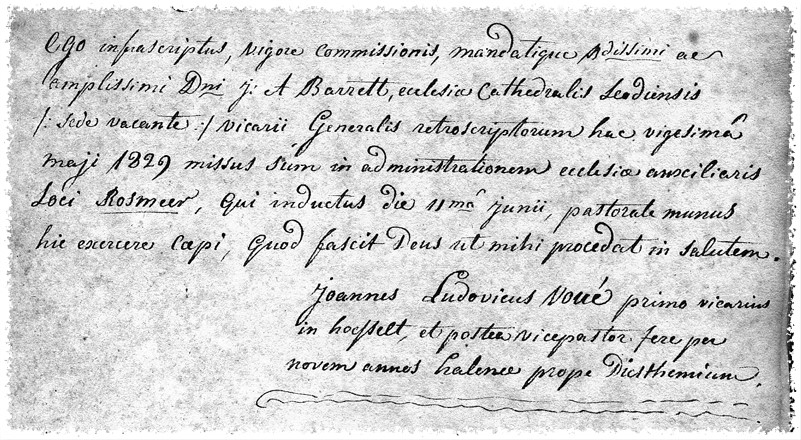 Ego infrascriptus, vigore commissionis, mandatique Rdissimi ac
amplissimi Dni J: A Barrett, ecclesiæ Cathedralis Leodiensis
/: sede vacante :/ vicarii Generalis retroscriptorum hac vigesimâ
maji 1829 missus sum in administrationem ecclesiæ auxiliaris
Loci Rosmeer, qui inductus die 11mâ junii, pastorale munus
hic exercere cæpi, Quod fascit Deus ut mihi procedat in salutem.
Joannes Ludovicus Voué primo vicarius
in hasselt, et postea vicepastor fere per
novem annos halence prope Diesthemium.